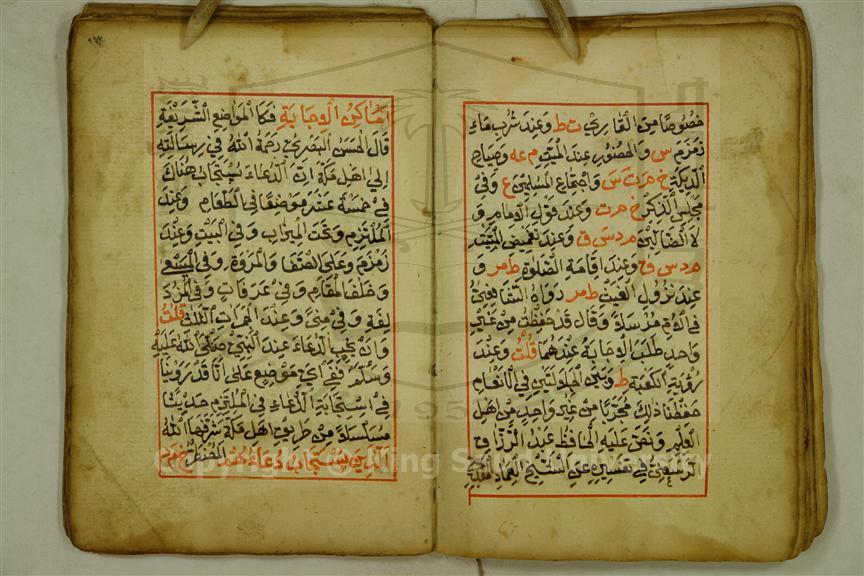 خصوصا من القارئ ت ط وعند شرب ماء
زمزم س والحضور عند الميت م عه وصياح
الديكة خ م ت س واجتماع المسلمين ع وفي
مجلس الذكر خ م ت وعند قول الامام و
لا الضالين م د س ق وعند تغميض الميت
م د س ق وعند اقامة الصلوة ط مر و
عند نزول الغيث ط مر رواه الشافعي
في الام مرسلا وقال قد حفظت من غير
واحد طلب الاجابة عندهما قلت وعند
رؤية الكعبة ط وبين الجلالتين في الانعام
حفظنا ذلك مجربا من غير واحد من اهل
العلم ونص عليه الحافظ عبد الرزاق
الرسعني في تفسيره عن الشيخ العماد المقدسي
٢٩٣
اماكن الاجابة فكالمواضع الشريفة
قال الحسن البصري رحمه الله في رسالته
الى اهل مكة ان الدعاء يستجاب هناك
في خمسة عشر موضعا في الطواف وعند
الملتزم وتحت الميزاب وفي البيت وعند
زمزم وعلى الصفا والمروة وفي المسعى
وخلف المقام وفي عرفات وفي المزد
لفة وفي منى وعند الجمرات الثلث قلت
وان لم يجب الدعاء عند النبي صلى الله عليه
وسلم ففي اي موضع على انا قد روينا
في استجابة الدعاء في الملتزم حديثا
مسلسلا من طريق اهل مكة شرفها الله
الذين يستجاب دعاءهم المضطر خ م د
Copyright © King Saud University
1957